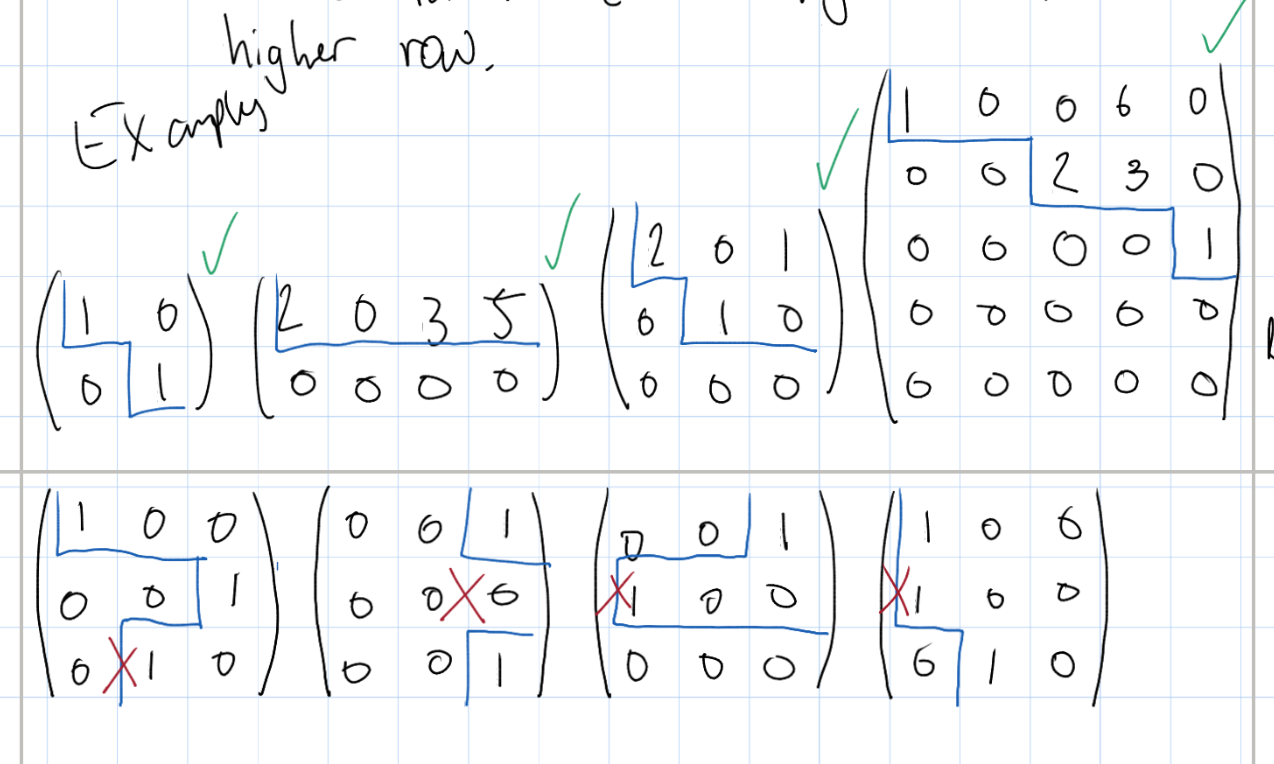 higher row.
Examples
1 0
0 1
2 0 3 5
0 0 0 0
2 0 1
0 1 0
0 0 0
1 0 0 6 0
0 0 2 3 0
0 0 0 0 1
0 0 0 0 0
0 0 0 0 0
1 0 0
0 0 1
0 1 0
0 0 1
0 0 0
0 0 1
0 0 1
1 0 0
0 0 0
1 0 0
1 0 0
0 1 0